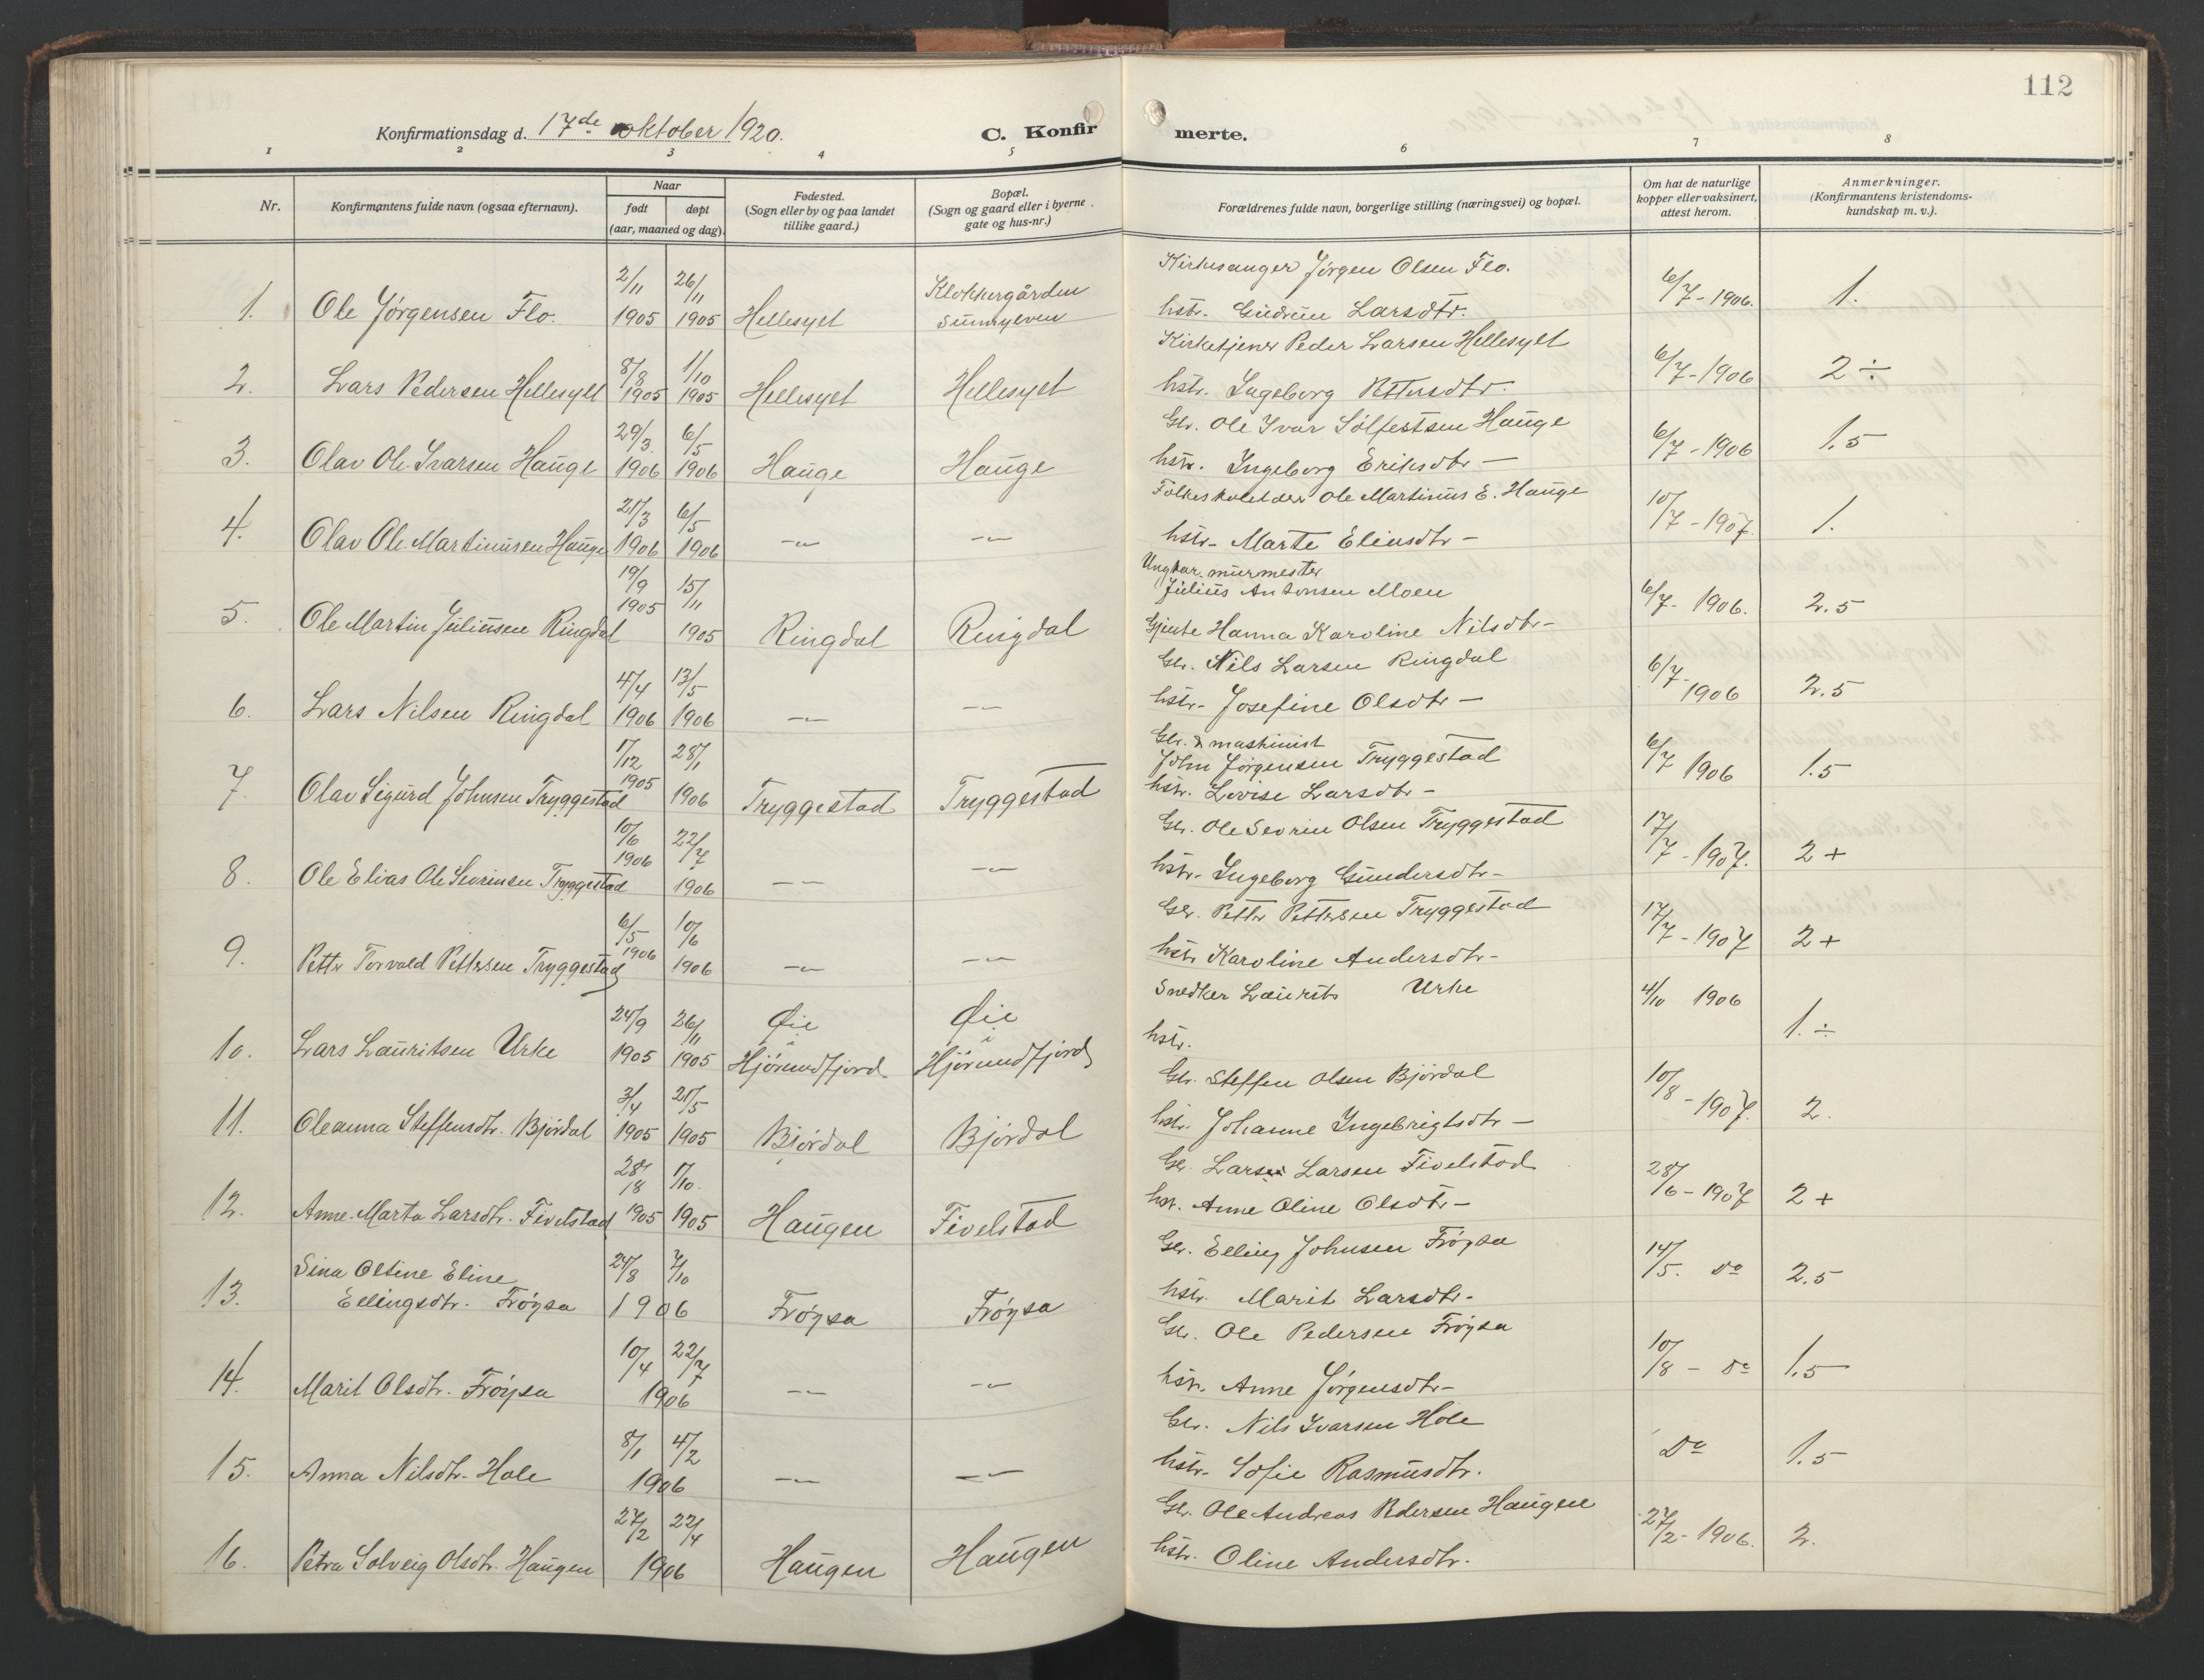 112
Konfirmationsdag d. 17de oktober 1920.
C. Konfirmerte.
1 2 3 4 5 6 7 8
Nr.
Konfirmantens fulde navn (ogsaa efternavn).
Naar
født døpt
(aar, maaned og dag).
Fødested.
(Sogn eller by og paa landet
tillike gaard.)
Bopæl.
(Sogn og gaard eller i byerne
gate og hus-nr.)
Forældrenes fulde navn, borgerlige stilling (næringsvei) og bopæl.
Om hat de naturlige
kopper eller vaksinert,
attest herom.
Anmerkninger.
(Konfirmantens kristendoms-
kundskap m. v.).
2/11 26/11 Klokkergården Kirkesanger Jörgen Olsen Flo.
1. Ole Jörgensen Flo. 1905 1905 Hellesylt Sunnylven hstr. Gudrun Larsdtr. 6/7-1906. 1.
8/8 1/10 Kirketjener Peder Larsen Hellesylt
2. Lars Pedersen Hellesylt 1905 1905 Hellesylt Hellesylt hstr. Ingeborg Pettersdtr. 6/7-1906 2 ÷
29/3 6/5 Gbr. Ole Ivar Sölfestsen Hauge
3. Olav Ole-Ivarsen Hauge 1906 1906 Hauge Hauge hstr. Ingeborg Eriksdtr — 6/7-1906 1.5
21/3 6/5 Ole Martinus E. Hauge
4. Olav Ole-Martinusen Hauge 1906 1906 —〃— —〃— hstr. Marte Eliasdtr — 10/7-1907. 1.
19/9 1905 15/11 Ungkar. murmester
Julius Antonsen Moen
5. Ole Martin Juliussen Ringdal 1905 Ringdal Ringdal Gjente Hanna Karoline Nilsdtr- 6/7- 1906. 2.5
4/4 13/5 Gbr. Nils Larsen Ringdal
6. Lars Nilsen Ringdal 1906 1906 —〃— —〃— hstr. Josefine Olsdtr — 6/7- 1906 2.5
1/12 1905 28/1 Gbr. & maskinist
John Jörgensen Tryggestad
7. Olav Sigurd Johnsen Tryggestad 1906 Tryggestad Tryggestad hstr. Lovise Larsdtr - 6/7 1906 1.5
10/6 1906 22/7 Gbr. Ole Sevrin Olsen Tryggestad
8. Ole Elias Ole Sevrinsen Tryggestad 1906 —〃— —〃— hstr. Ingeborg Gundersdtr- 17/7-1907. 2+
6/5 1906 10/6 Gbr. Petter Pettersen Tryggestad
9. Petter Torvald Pettersen Tryggestad 1906 —〃— —〃— hstr Karoline Andersdtr- 17/7-1907 2+
24/9 26/11 Øie Øie Snedker Laurits Urke 4/10 1906
10. Lars Lauritsen Urke 1905 1905 i Hjörundfjord i Hjörundfjord hstr. 1.÷
3/4 21/5 Gbr. Steffen Olsen Björdal
11. Oleanna Steffensdtr. Björdal 1905 1905 Björdal Björdal hstr. Johanne Ingebrigtsdtr — 10/8-1907. 2.
28/8 1/10. Gbr. Lars Larsen Fivelstad
12. Anne-Marta Larsdtr. Fivelstad 1905 1905 Haugen Fivelstad hstr. Anne Oline Olsdtr- 28/6-1907 2+
Sina Oltine Eline 24/8 7/10 Gbr. Elling Johnsen Fröysa
13. Ellingsdtr. Fröysa 1906 Fröysa Fröysa hstr. Marit Larsdtr- 14/5. do 2.5
10/4 22/7 Gbr. Ole Pedersen Fröysa
14. Marit Olsdtr. Fröysa 1906 —〃— —〃— hstr. Anne Jörgensdtr- 10/8 - do 1.5
8/1 4/2 Gbr. Nils Ivarsen Hole
15. Anna Nilsdtr- Hole 1906 —〃— —〃— hstr. Sofie Rasmusdtr. do 1.5
27/2 22/4 Gbr. Ole Andreas Pedersen Haugen
16. Petra Solveig Olsdtr. Haugen 1906 Haugen Haugen hstr. Oline Andersdtr. 27/2-1906. 2.